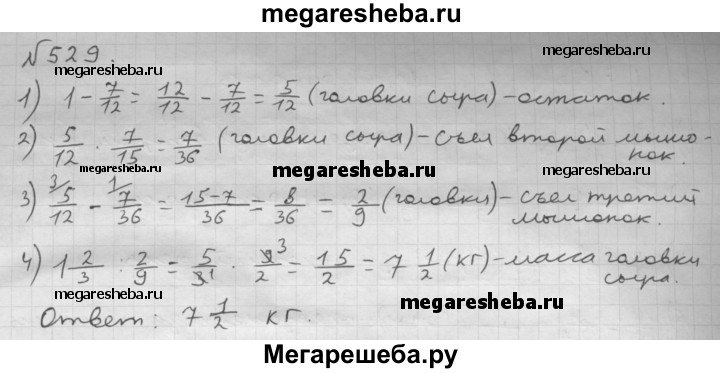 megaresheba.ru
№529.
megaresheba.ru
megaresheba.ru
1) 1 - 7/12 = 12/12 - 7/12 = 5/12 (головки сыра) - остаток.
2) 5/12 · 7/15 = 7/36 (головки сыра) - съел второй мышо-
нок.
megaresheba.ru
megaresheba.ru
megaresheba.ru
3) 3/ 5/12 - 1/ 7/36 = 15-7/36 = 8/36 = 2/9 (головки) - съел третий
мышонок.
4) 1 2/3 : 2/9 = 5/3 1 · 9 3/2 = 15/2 = 7 1/2 (кг) - масса головки
сыра.
megaresheba.ru
Ответ: 7 1/2 кг.
Мегарешеба.ру